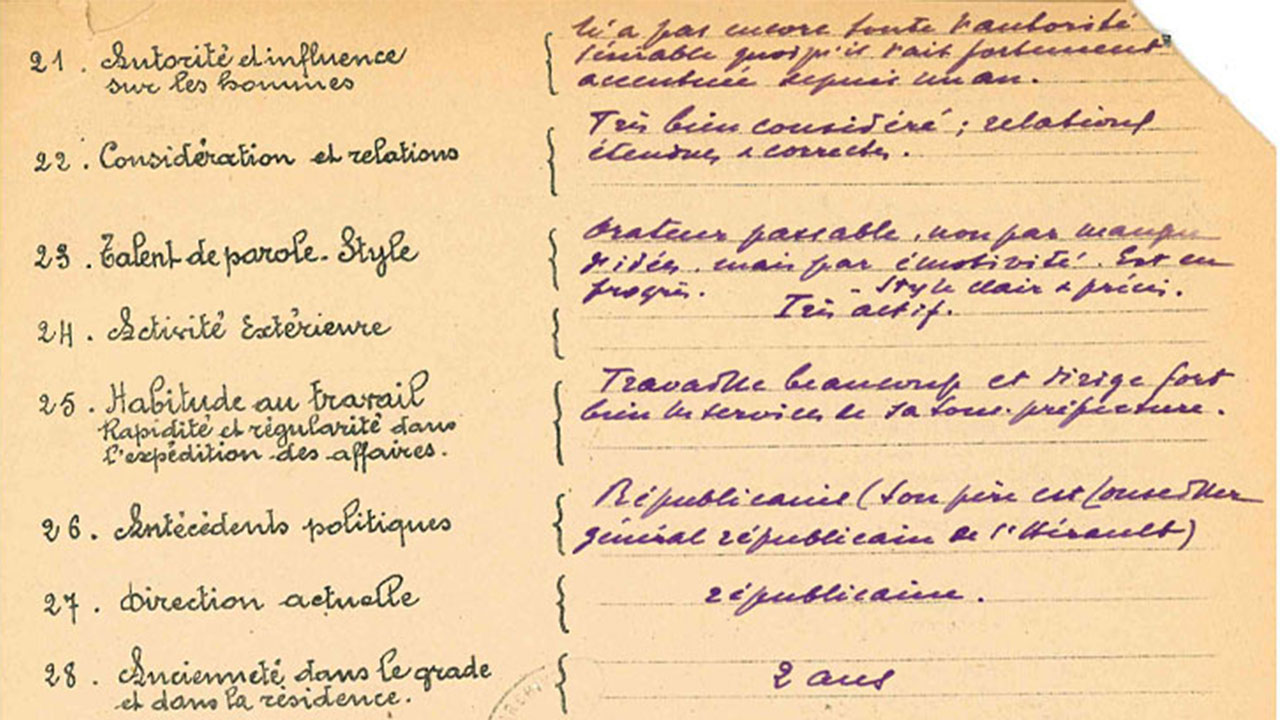 21. Autorité et influence
sur les hommes
N'a pas encore toute l'autorité
désirable quoiqu'il l'ait fortement
accentuée depuis un an.
22. Considération et relations
Très bien considéré ; relations
étendues & correctes.
23. Talent de parole. Style
Orateur passable, non par manque
d'idées, mais par émotivité. Est en
progrès. - Style clair & précis.
24. Activité Extérieure
Très actif.
25. Habitude au travail
Rapidité et régularité dans
l'expédition des affaires.
Travaille beaucoup et dirige fort
bien les services de sa sous-préfecture.
26. Antécédents politiques
Républicains (son père est Conseiller
général républicain de l'Hérault)
27. Direction actuelle
républicaine.
28. Ancienneté dans le grade
et dans la résidence.
2 ans